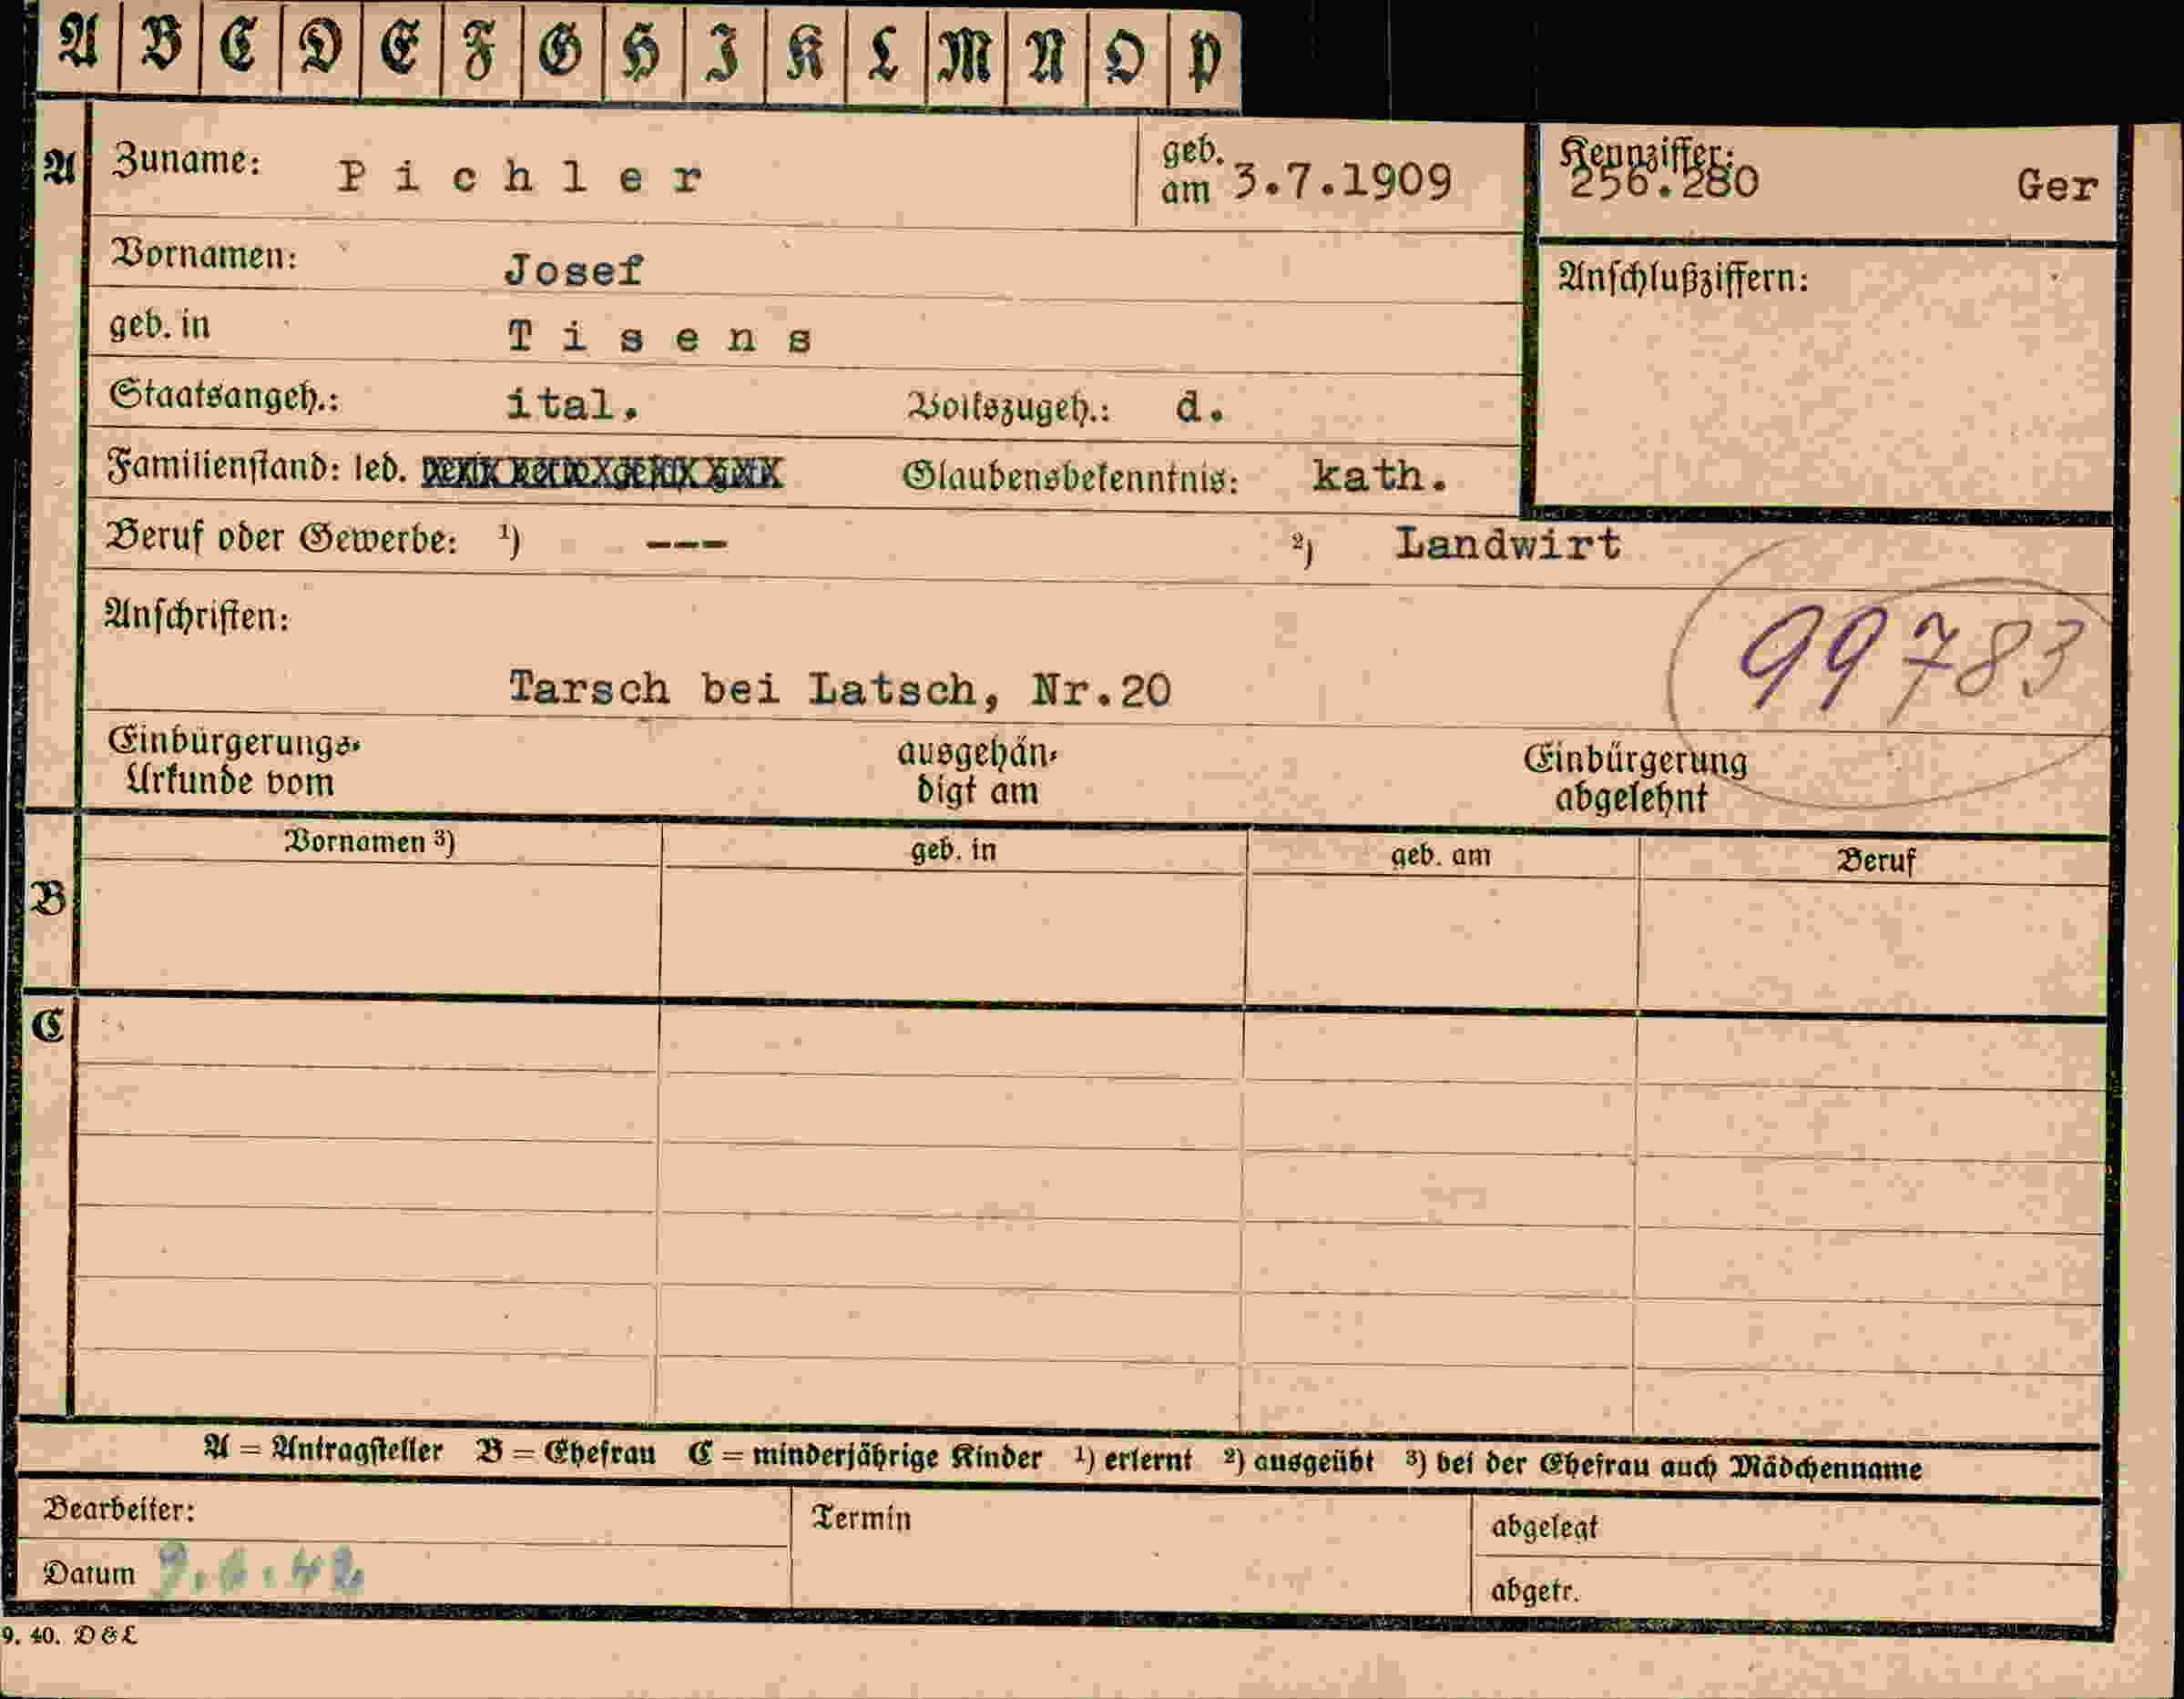 A B C D E F G H I K L M N O P
A Zuname: Pichler geb. am 3.7.1909 Kennziffer: 256.280 Ger
Vornamen: Josef Anschlußziffern:
geb. in Tisens
Staatsangeh.: ital. Volkszugeh.: d.
Familienstand: led. Glaubensbekenntnis: kath.
Beruf oder Gewerbe: ¹) --- ²) Landwirt
Anschriften:
99783
Tarsch bei Latsch, Nr.20
Einbürgerungs- ausgehän- Einbürgerung
Urkunde vom digt am abgelehnt
Vornamen ³) geb. in geb. am Beruf
B
C
A = Antragsteller B = Ehefrau C = minderjährige Kinder ¹) erlernt ²) ausgeübt ³) bei der Ehefrau auch Mädchenname
Bearbeiter: Termin abgelegt
Datum abgetr.
9. 40. D & L